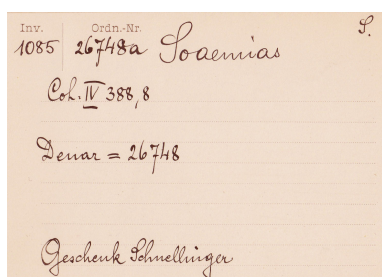 Inv. Ordn.-Nr. S.
1085 26748a Soaemias
Coh. IV 388,8
Denar = 26748
Geschenk Schnellinger